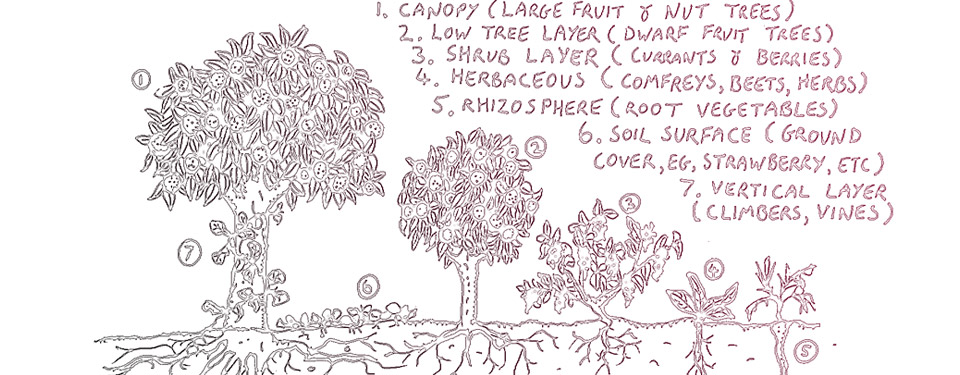 1. CANOPY (LARGE FRUIT & NUT TREES)
2. LOW TREE LAYER (DWARF FRUIT TREES)
3. SHRUB LAYER (CURRANTS & BERRIES)
4. HERBACEOUS (COMFREYS, BEETS, HERBS)
5. RHIZOSPHERE (ROOT VEGETABLES)
6. SOIL SURFACE (GROUND
COVER, EG, STRAWBERRY, ETC)
7. VERTICAL LAYER
(CLIMBERS, VINES)
1
2
3
7
4
6
5